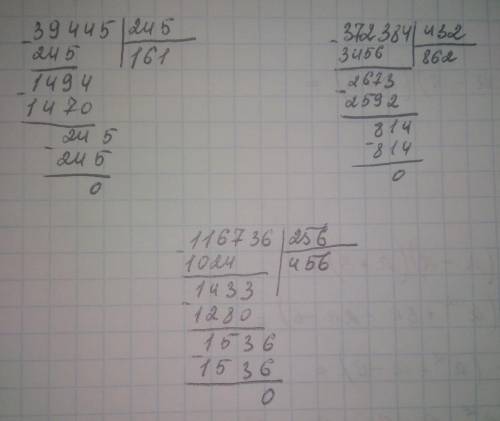 - 39445 | 245
245 | 161
- 1494
1470
- 245
245
0
- 372384 | 432
3456 | 862
- 2673
2592
- 814
814
0
- 116736 | 256
1024 | 456
- 1433
1280
- 1536
1536
0